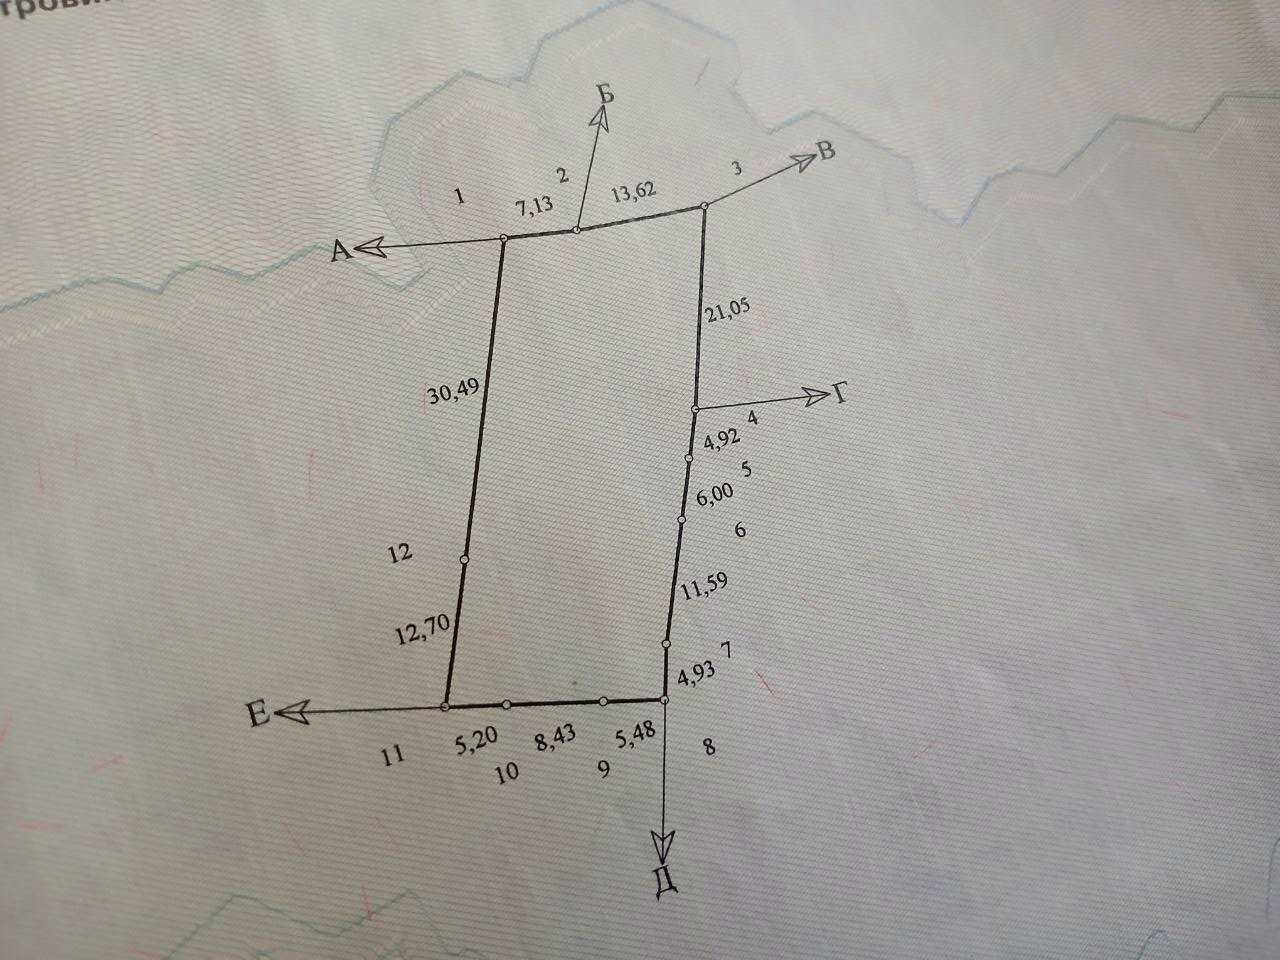 Б
В
3
2
13,62
1
7,13
А
21,05
30,49
Г
4
4,92
5
6,00
6
12
11,59
12,70
7
4,93
Е
5,20
8,43
5,48
8
11
10
9
Д